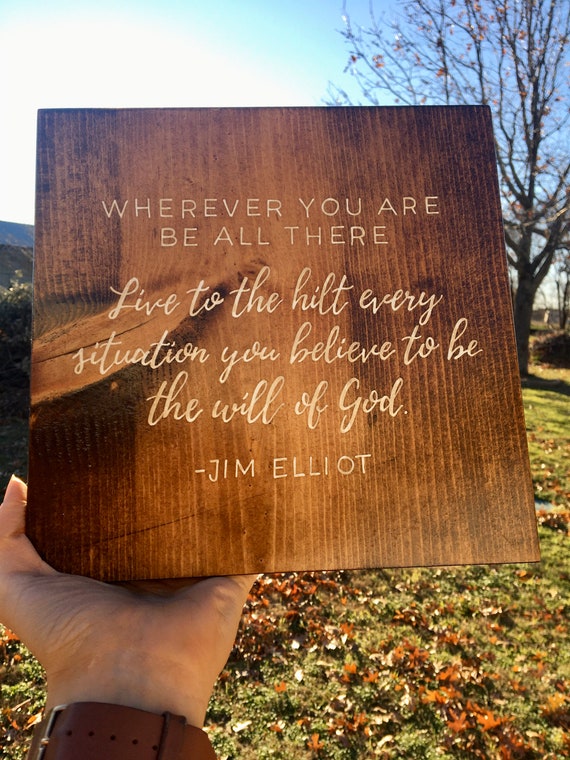 WHEREVER YOU ARE
BE ALL THERE
Live to the hilt every
situation you believe to be
the will of God.
-JIM ELLIOT